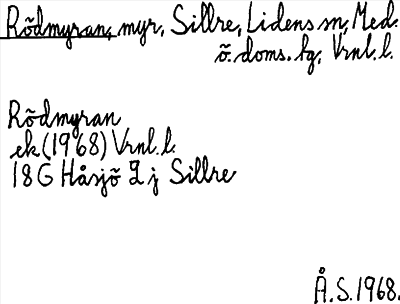 Rödmyran, myr, Sillre, Lidens sn, Med.
ö. doms. hg, Vrnl. l.
Rödmyran
ek (1968) Vrnl. l.
18G Håsjö 9 j Sillre
Å.S. 1968.